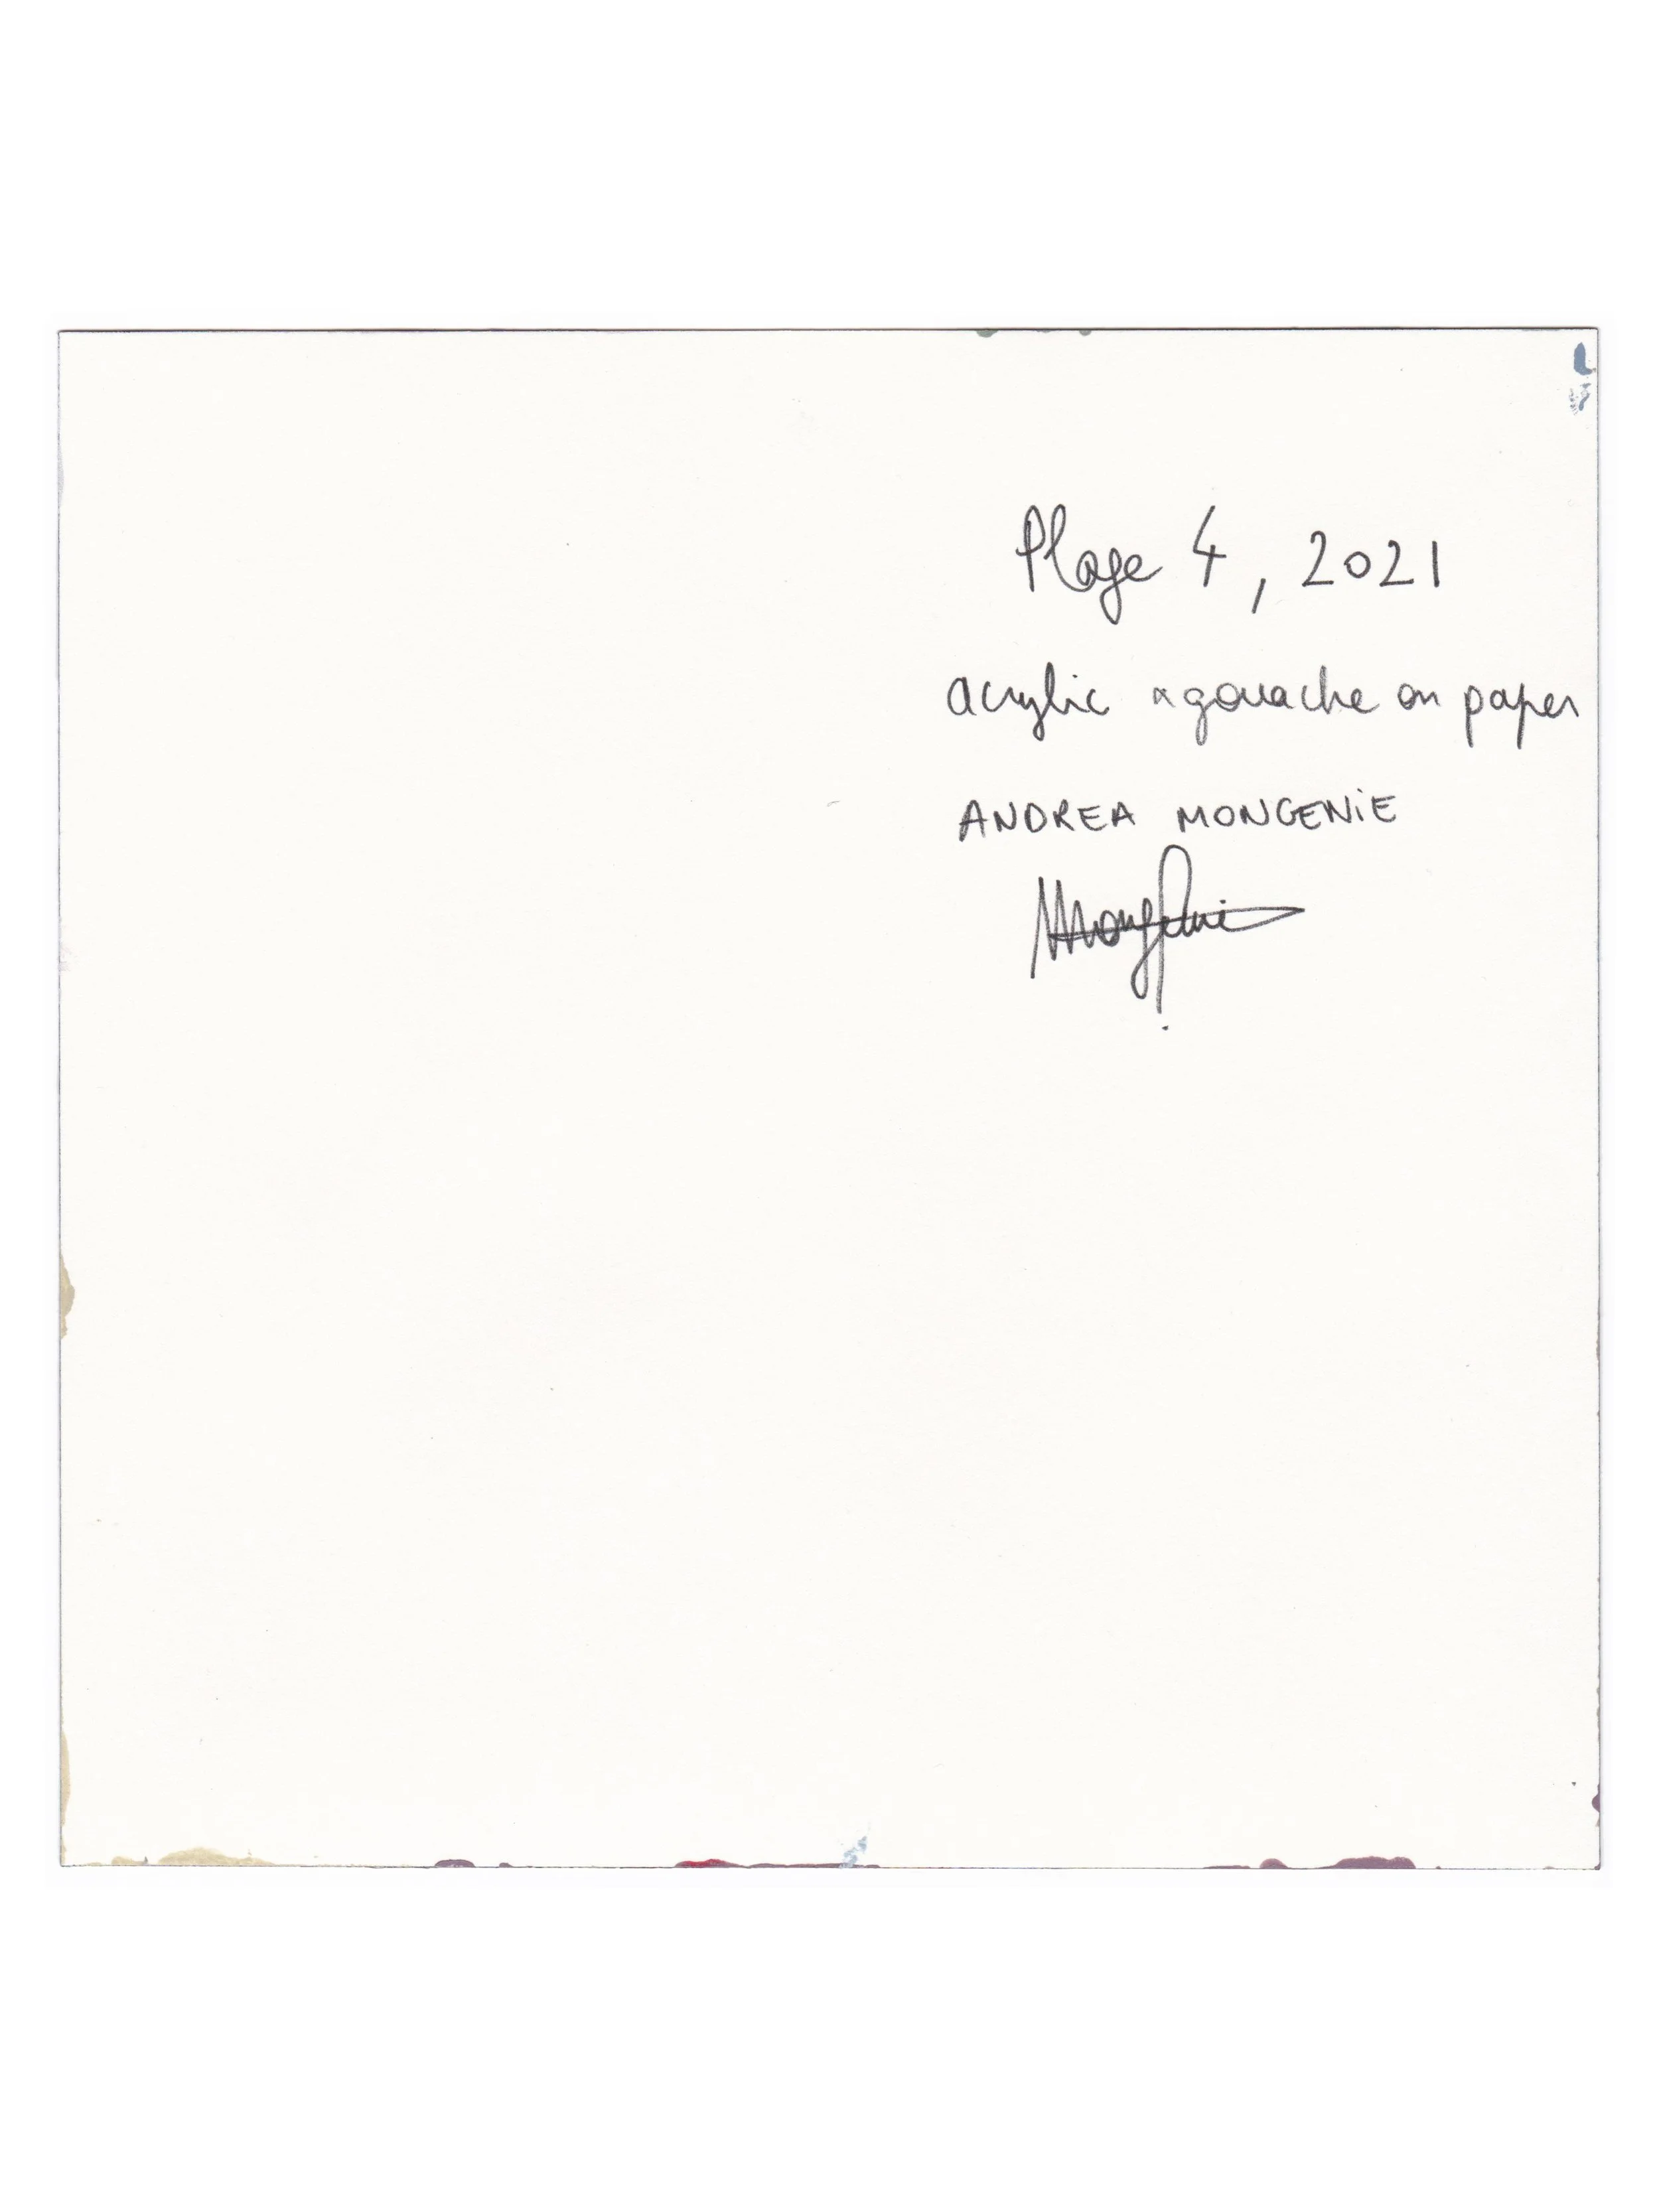 Plage 4, 2021
acrylic & gouache on paper
ANDREA MONGENIE
Mongenie